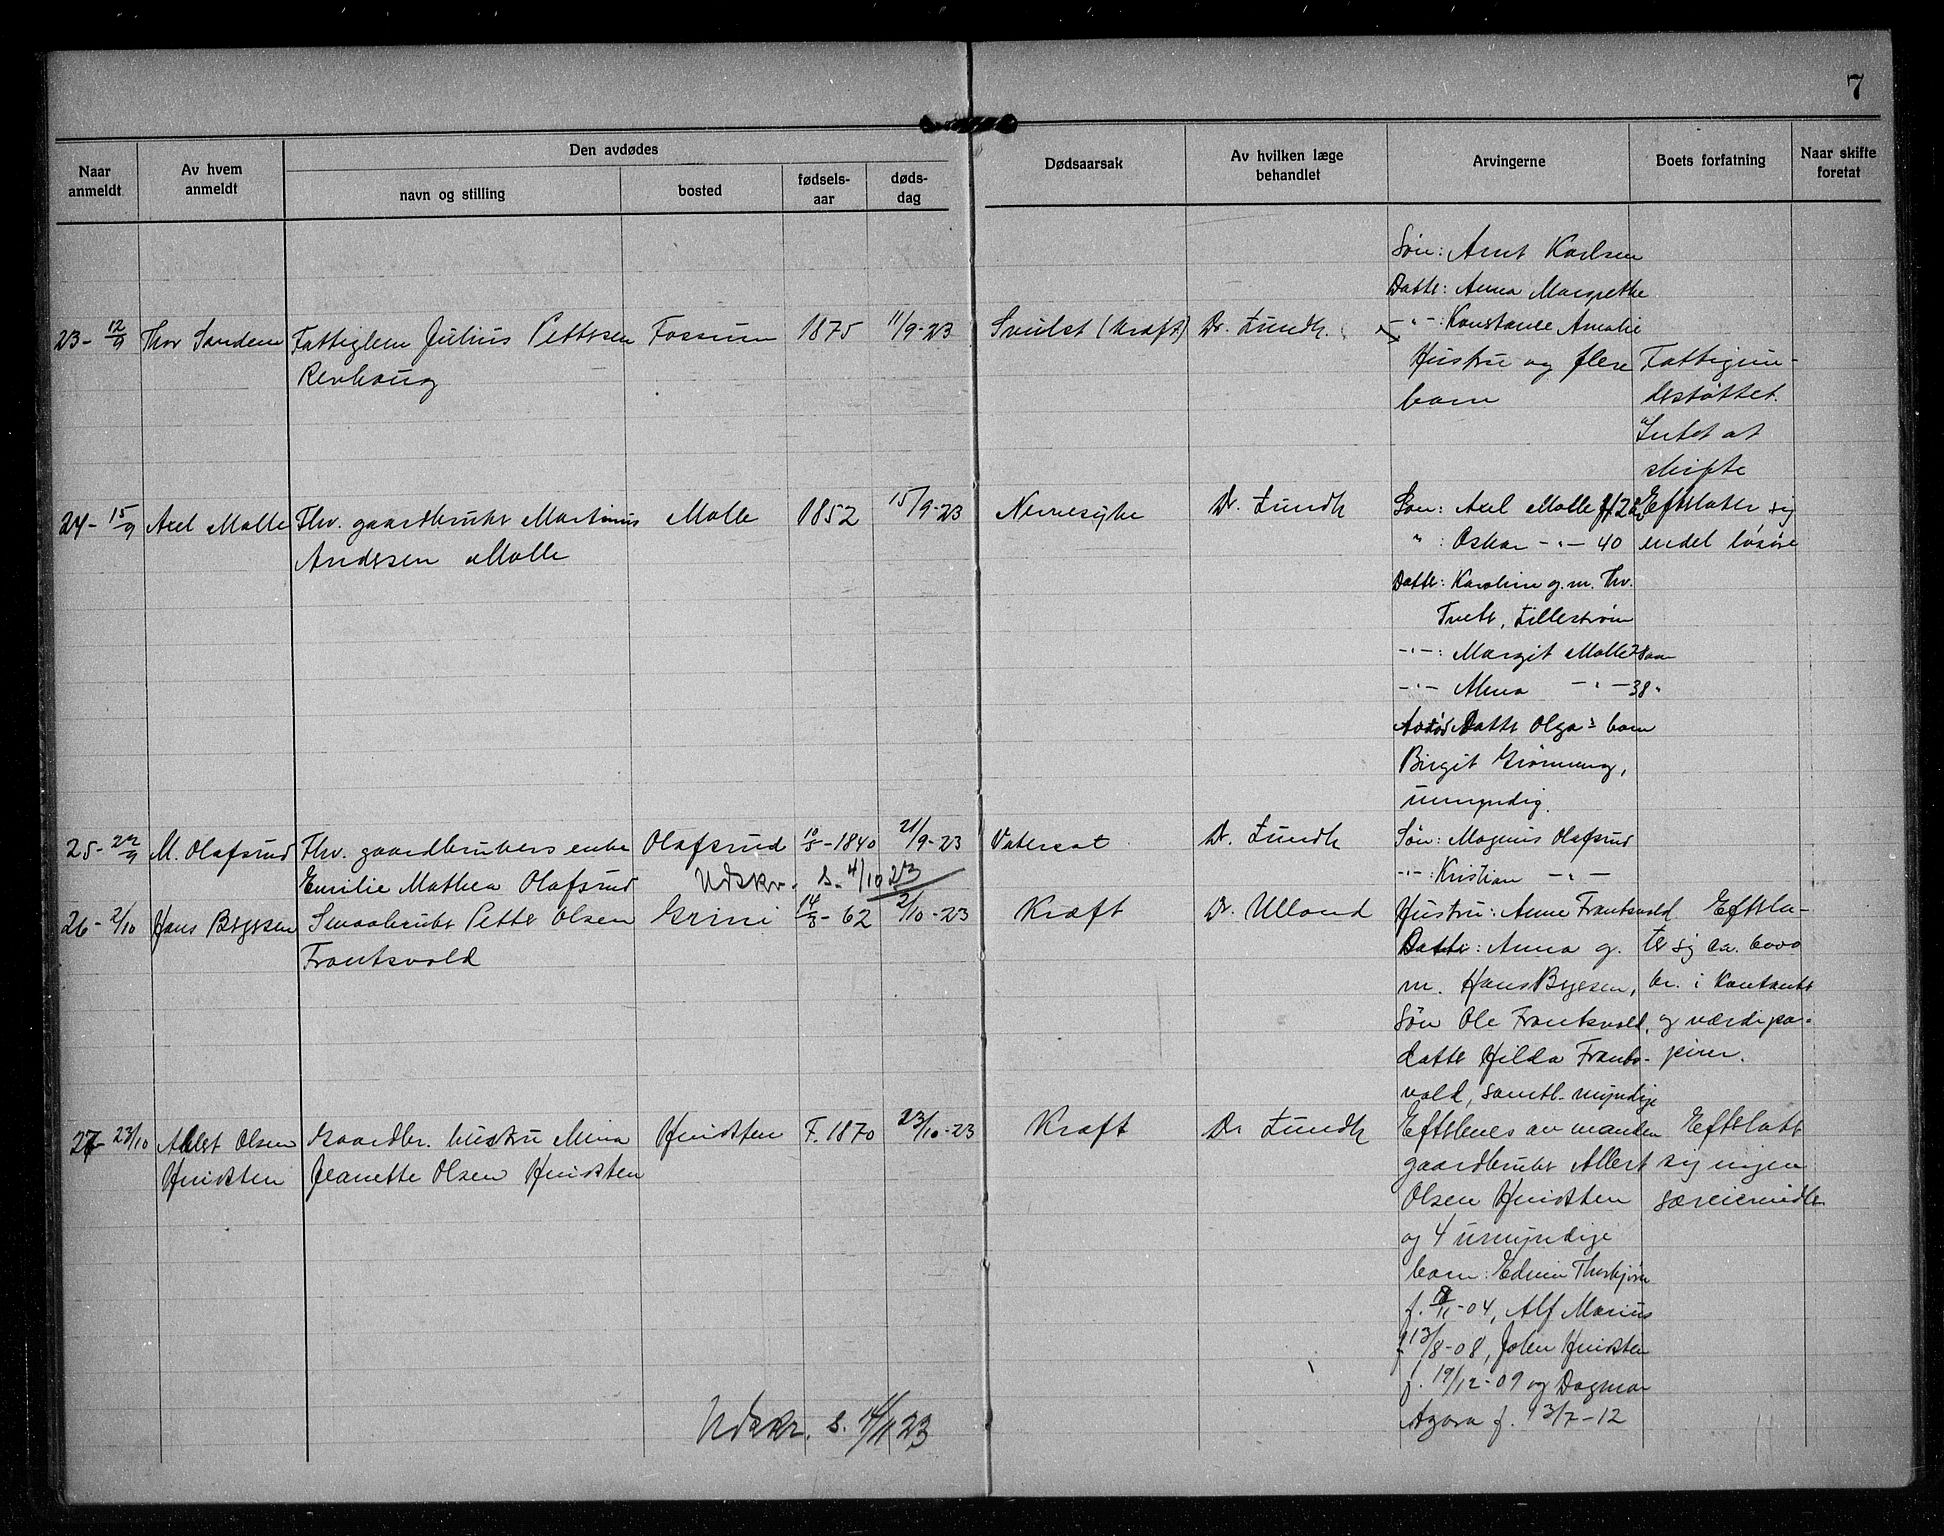 7
Naar anmeldt
Av hvem anmeldt
Den avdødes
navn og stilling
bosted
fødsels-aar
døds-dag
Dødsaarsak
Av hvilken læge behandlet
Arvingerne
Boets forfatning
Naar skifte foretat
Søn: Arnt Karlsen
Datter: Anna Margrethe
23- 12/9 Thor Sandem Fattiglem Julius Pettersen Fossum 1875 11/9-23 Svulst (Kræft) Dr. Lundh. -"-: Konstanse Amalie
Revhaug Hustru og flere Fattigun-
barn derstøttet.
Intet at
skifte
24- 15/9 Axel Molle Fhv. gaardbruker Martinus Molle 1852 15/9-23 Nervesyke Dr. Lundh Søn: Axel Molle Efterlater sig
Andersen Molle " : Oskar -"- 40 endel løsøre
Datter: Karoline g.m. Thv.
Tveter, Lillestrøm
-"-: Margit Molle
-"- Alma -"- 38 "
Avdød Datter Olga's barn
Birgit
umyndig.
25- 22/9 M. Olafsrud Fhv. gaardbrukers enke Olafsrud 10/5-1840 21/9-23 Vatersot Dr. Lundh Søn: Magnus Olafsrud
Emilie Mathea Olafsrud Udskr. s. 4/10 23 -"-: Kristian -"-
26- 2/10 Hans Børresen Smaabruker Petter Olsen Grini 14/3-62 2/10-23 Kræft Dr. Ulland Hustru: Anne Frantsvold Efterla-
Frantsvold Datter: Anna g. ter sig ca. 6000
m. Hans Børresen, kr. i kontanter
Søn Ole Frantsvold, og værdipa-
datter Hilda Frants- pirer.
vold, samtl. myndige
27- 23/10 Albert Olsen Gaardbr. hustru Mina Knidsten F. 1870 23/10-23 Kræft Dr Lundh Efterleves av manden Efterlater
Jeanette Olsen gaardbruker Albert sig ingen
Olsen særeiemidler
og 4 umyndige
barn: Edvin Thorbjørn
f. 8/11-04, Alf Marius
f 13/8-08, John
f. 19/12-09 og Dagmar
Agora f. 13/7-12
Udskr. s. 14/11 23